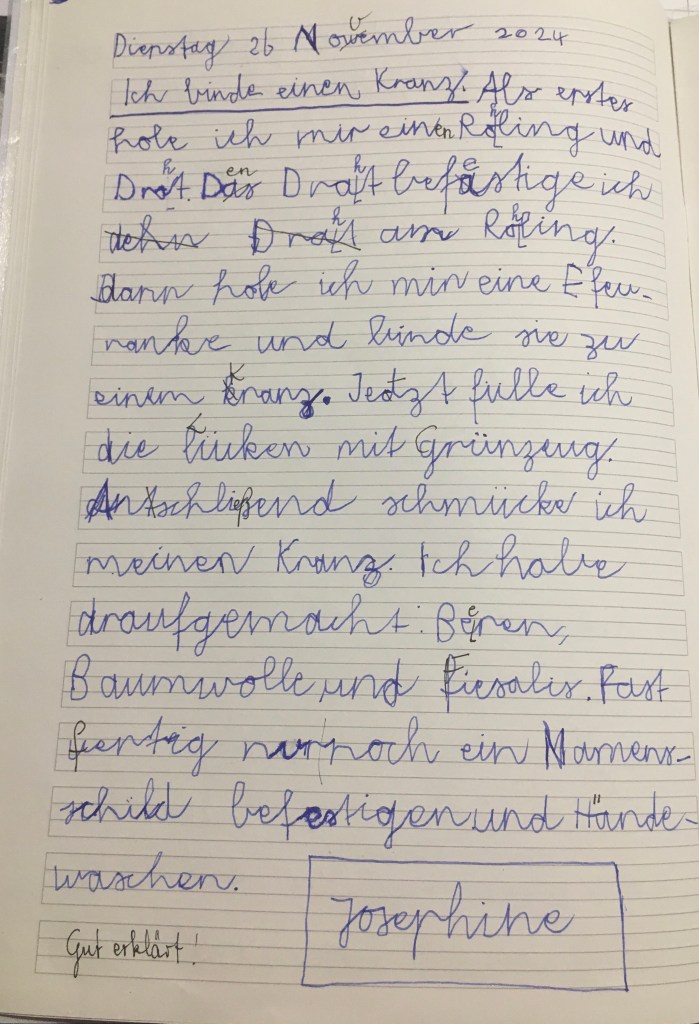 Dienstag 26 November 2024
Ich binde einen Kranz. Als erstes
hole ich mir einen Rohling und
Draht. Den Draht befestige ich
dehn Draht am Rohling.
dann hole ich mir eine Efeu-
ranke und binde sie zu
einem Kranz. Jetzt fulle ich
die Lüken mit Grünzeug.
Anschließend schmücke ich
meinen Kranz. Ich habe
draufgemacht: Beeren,
Baumwolle und Fiesalis. Fast
fertig nur noch ein Namens-
schild befestigen und Hände-
waschen.
Josephine
Gut erklärt!